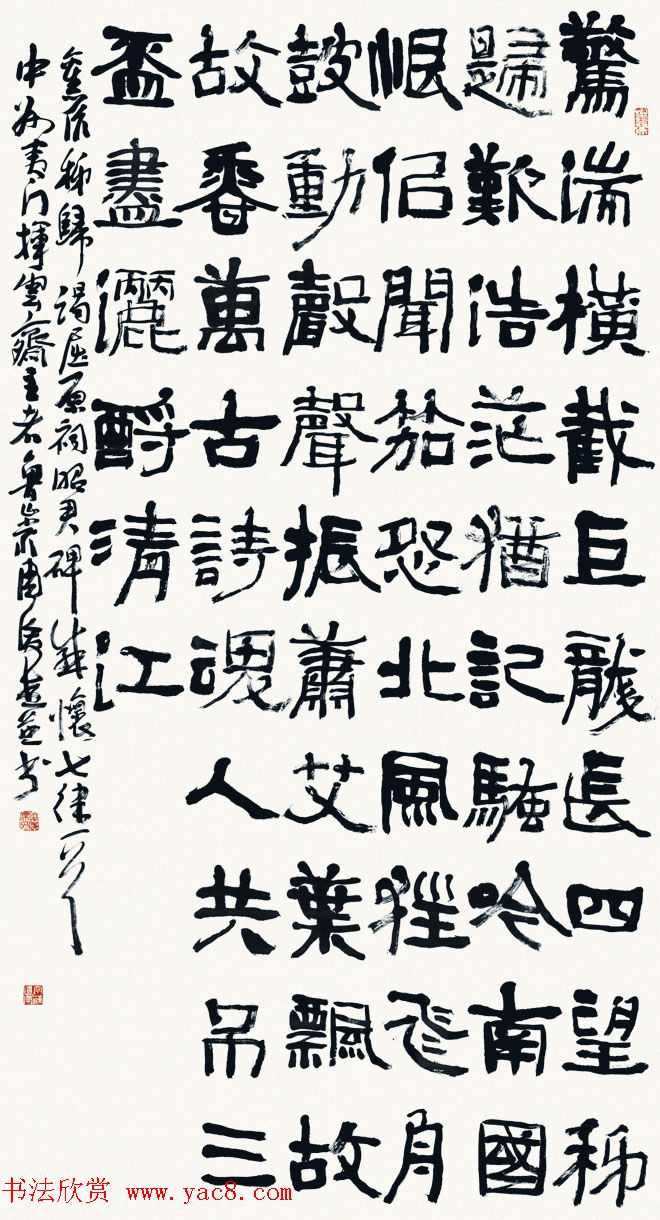 驚湍橫截巨龍長四望秭
歸艱浩茫猶記騷吟南國
恨但聞笳恐北風狂飛舟
鼓動聲振蕭艾葉飄故
故香萬古詩魂人共吊三
盃盡灑酹清江
舊作秭歸謁屈原祠昭君碑感懷七律一首
中州夷門揮雲齋主者並書
书法欣赏 www.yac8.com